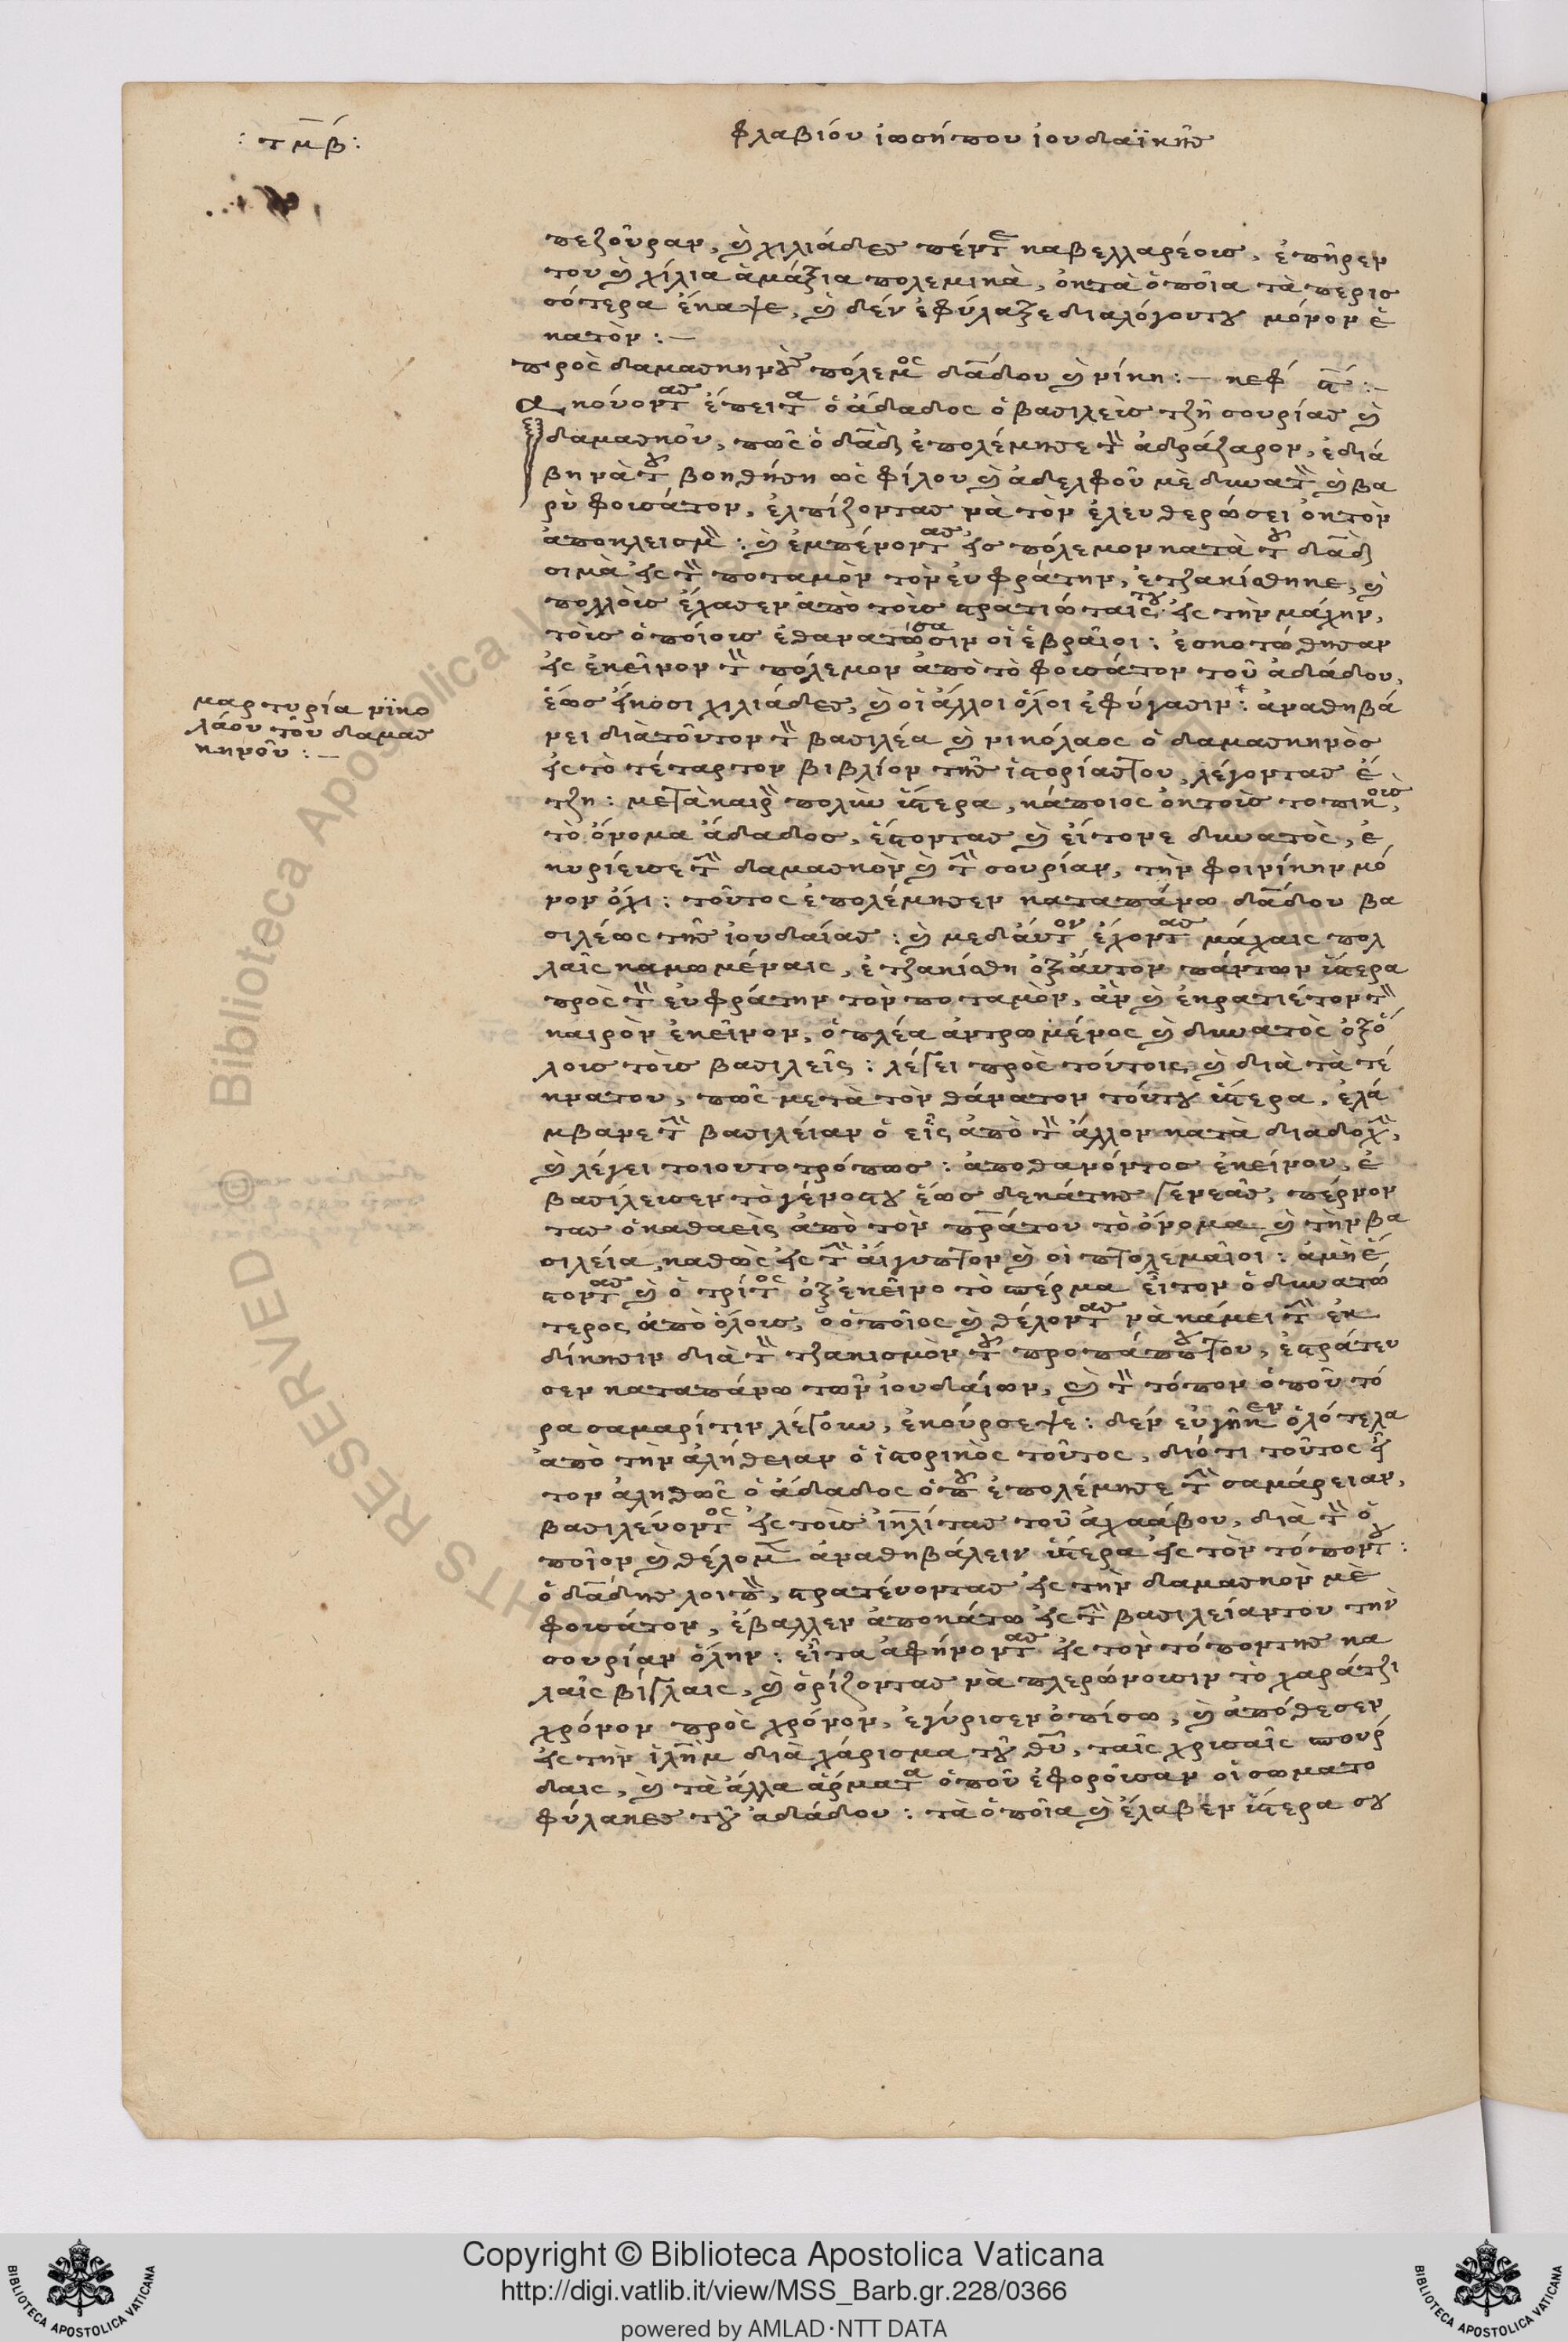 : τμβ́ :
φλαβιόυ ἰωσήπου ἰουδαϊκῆσ
πεζοῦραν, ϗ χιλιάδεσ πέντε καβελλαρέουσ, ἐπῆρεν
του ϗ χίλια ἁμάξια πολεμικὰ, ὀκ τὰ ὁποῖα τὰ περισ
σότερα ἔκαψε, ϗ δέν ἐφύλαξε διαλόγουτου μόνον ἑ
κατὸν : –
πρὸς δαμασκηνοὺσ πόλεμος δαδου ϗ νίκη : – κεφ
ακούοντασ ἔπειτα ὁ ἄδαδος ὁ βασιλεὺσ τζῆ σουρίασ ϗ
δαμασκοῦ, πῶς ὁ δαδ ἐπολέμησε τὸν ἀδράζαρον, ἐδιά
βη νὰ τοῦ βοηθήση ὡς φίλου ϗ ἀδελφοῦ μὲ δυνατὸν ϗ βα
ρὺ φουσάτον, ἐλπίζοντασ νὰ τὸν ἐλευθερώσει ὀκ τὸν
ἀποκλεισμὸν : ϗ ἐμπένοντασ εἰσ πόλεμον κατὰ τοῦ δαδ
σιμὰ εἰς τὸν ποταμὸν τὸν ἐυφράτην, ἐτζακίσθηκε, ϗ
πολλοὺσ ἔχασεν ἀπὸ τοὺσ στρατιώταις του εἰς τὴν μάχην,
τοὺσ ὁποίουσ ἐθανατώσασιν οἱ ἑβραῖοι : ἐσκοτώθησαν
εἰς ἐκεῖνον τὸν πόλεμον ἀπὸ τὸ φουσάτον τοῦ ἀδάδου,
ἕωσ εἴκοσι χιλιάδεσ, ϗ οἱ ἄλλοι ὅλοι ἐφύγασιν : ἀναθηβά
νει διὰ τοῦτον τὸν βασιλέα ϗ νικόλαος ὁ δαμασκηνὸσ
εἰς τὸ τέταρτον βιβλίον τῆσ ἱστορίασ του, λέγοντασ ἔ
τζη : μετὰ καιρὸν πολὺν ὕστερα, κάποιος ὀκ τοὺσ τοπικούσ,
τὸ ὄνομα ἄδαδὸσ, ἔστοντασ ϗ εἴτονε δυνατὸς, ἐ
κυρίευσε τὴν δαμασκὸν ϗ τὴν σουρίαν, τὴν φοινίκην μό
νον ὄχι : τοῦτος ἐπολέμησεν καταπάνω δάδου βα
σιλέως τῆσ ἰουδαίασ : ϗ μεδἀυτον ἔχοντασ μάχαις πολ
λαῖς καμωμέναις, ἐτζακίσθη ὀξἀυτὸν πάντων ὕστερα
πρὸς τὸν ἐυφράτην τὸν ποταμὸν, ἂν ϗ ἐκρατιέτον τὸν
καιρὸν ἐκεῖνον, ὁ πλέα ἀντρωμένος ϗ δυνατὸς ὀξὅ
λουσ τοὺσ βασιλεῖς : λέγει πρὸς τούτοις, ϗ διὰ τὰ τέ
κνατου, πῶς μετὰ τὸν θάνατον τούτου ὕστερα, ἐλά
μβανε τὴν βασιλείαν ὁ εἷς ἀπὸ τὸν ἄλλον κατὰ διαδοχὴν,
ϗ λέγει τοιουτοτρόπωσ : ἀποθανόντοσ ἐκείνου, ἐ
βασίλευσεν τὸ γένοστου ἕωσ δεκάτησ γενεᾶσ, πέρνον
τασ ὁ καθαεὶς ἀπὸ τὸν πράτον τὸ ὄνομα ϗ τὴν βα
σιλεία, καθὼς εἰς τὴν ἀίγυπτον ϗ οἱ πτολεμαῖοι : ἀμὴ ἔ
στοντασ ϗ ὁ τρίτος ὀξ ἐκεῖνο τὸ σπέρμα εἶτον ὁ δυνατώ
τερος ἀπὸ ὅλουσ, ὁ ὁποῖος ϗ θέλοντασ νὰ κάμει τὴν ἐκ
δίκησιν διὰ τὸν τζακισμὸν τοῦ προπάππουτου, ἐστράτευ
σεν καταπάνω τῶν ἰουδαίων, ϗ τὸν τόπον ὁποῦ τό
ρα σαμαρίτιν λέγουν, ἐκούρσεψε : δεν εὐγῆκεν ὁλότελα
ἀπὸ τὴν ἀλήθειαν ὁ ἱστορικὸς τοῦτος, διότι τοῦτος εἶ
τον ἀληθῶς ὁ ἄδαδος ὁποῦ ἐπολέμησε τὴν σαμάρειαν,
βασιλεύοντος εἰς τοὺσ ἰηλίτασ τοῦ ἀχαάβου, διὰ τὸν ὁ
ποῖον ϗ θέλομεν ἀναθηβάλειν ὕστερα εἰς τὸν τόποντου :
ὁ δαδησ λοιπὸν, στρατεύοντασ εἰς τὴν δαμασκὸν μὲ
φουσάτον, ἔβαλλεν ἀποκάτω εἰς τὴν βασιλείαντου τὴν
σουρίαν ὅλην : εἶτα ἀφήνοντασ εἰς τὸν τόποντησ κα
λαῖς βίγλαις, ϗ ὁρίζοντασ νὰ πλερώνουσιν τὸ χαράτζι
χρόνον πρὸς χρόνον, ἐγύρισεν ὀπίσω, ϗ ἀπόθεσεν
εἰς τὴν ἱλημ διὰ χάρισμα τοῦ θῦ, ταῖς χρυσαῖς
δαις, ϗ τὰ ἄλλα ἄρματα ὁποῦ ἐφοροῦσαν οἱ σωματο
φύλακεσ τοῦ ἀδάδου : τὰ ὁποῖα ϗ ἔλαβεν ὕστερα σου
μαρτυρία νϊκο
λάου τοῦ δαμασ
κηνοῦ : –
Copyright © Biblioteca Apostolica Vaticana
http://digi.vatlib.it/view/MSS_Barb.gr.228/0366
powered by AMLAD·NTT DATA